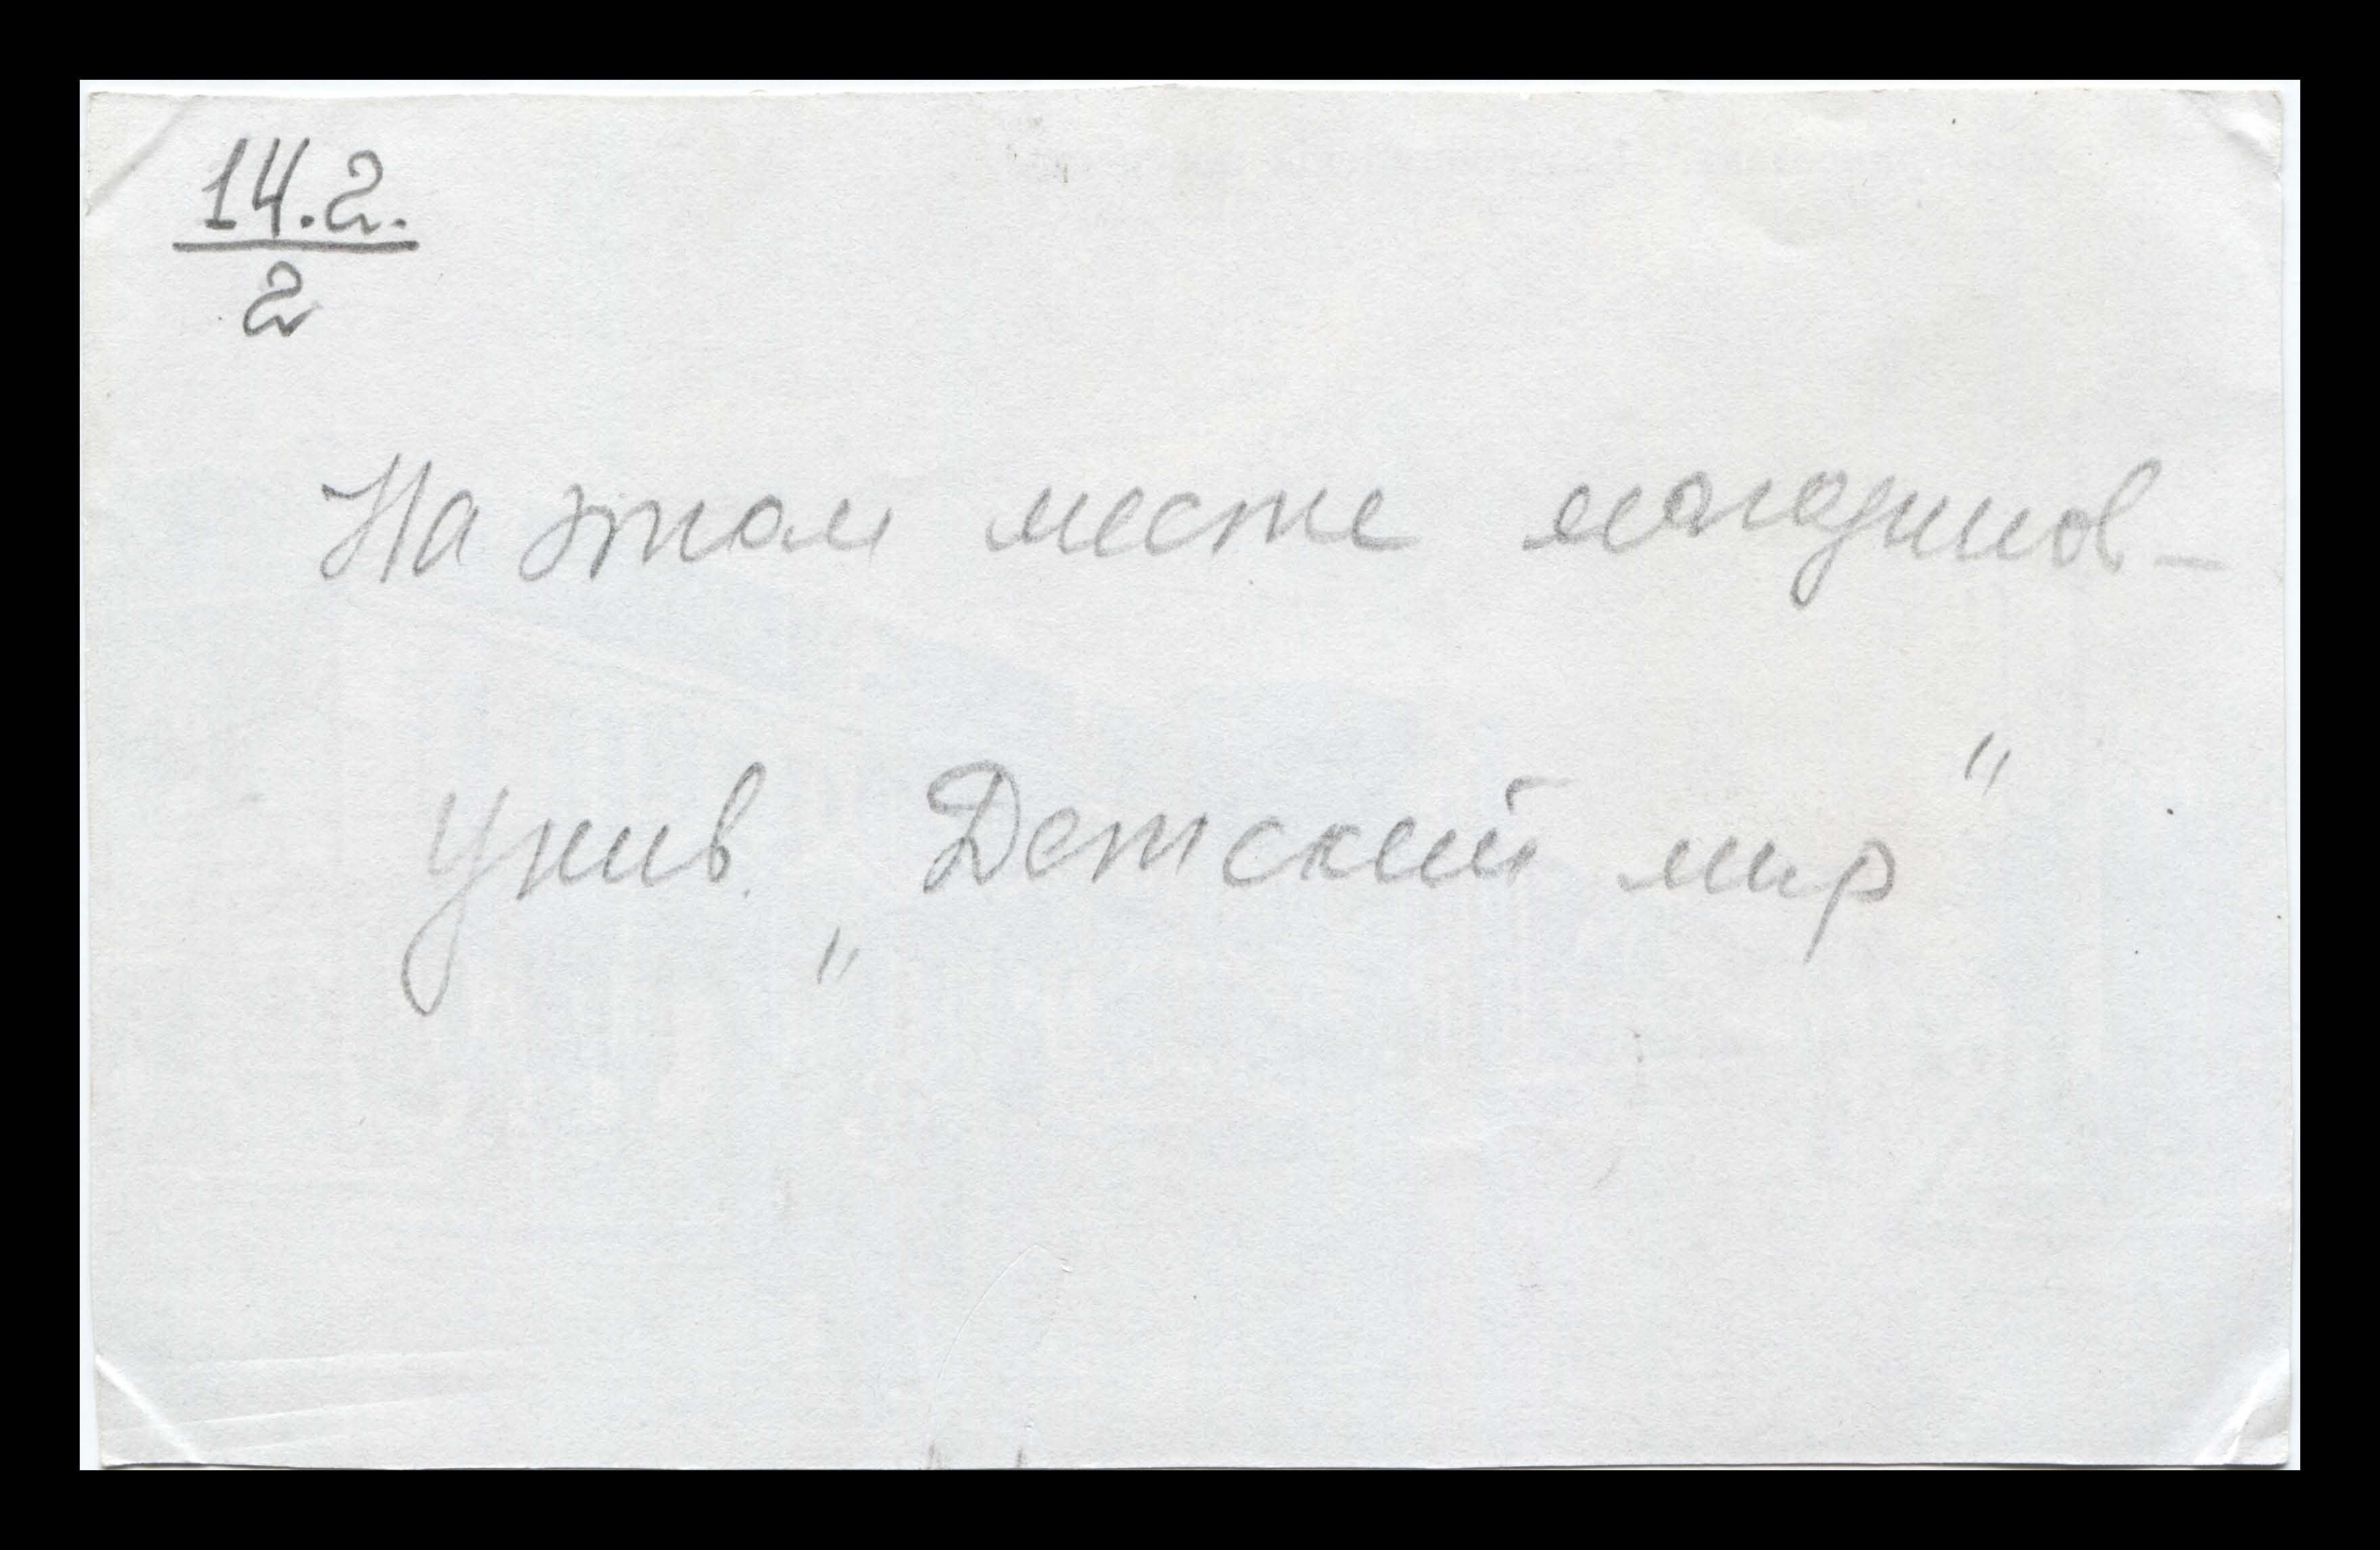 14.2.
2
На этом месте магазинов-
Унив. „Детский мир"